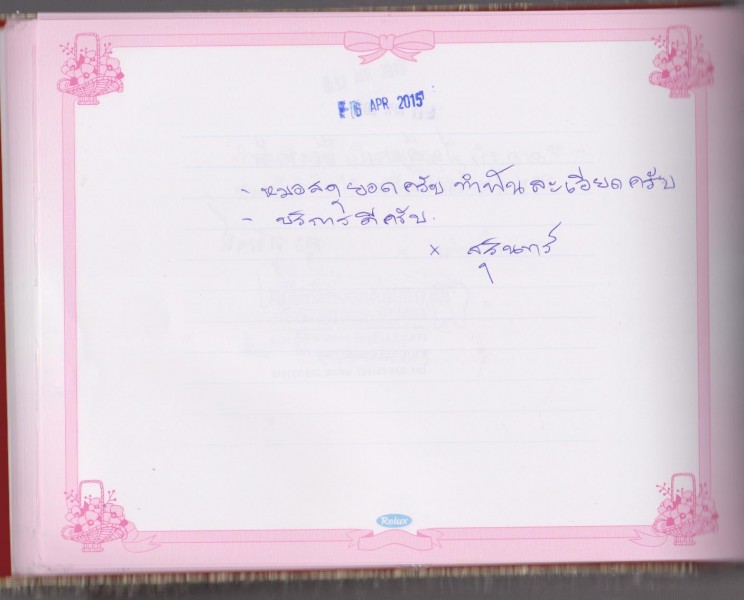 6 APR 2015
- หมอสุดยอดครับ ทำฟันละเอียดครับ
- บริการดีครับ.
×
Relux